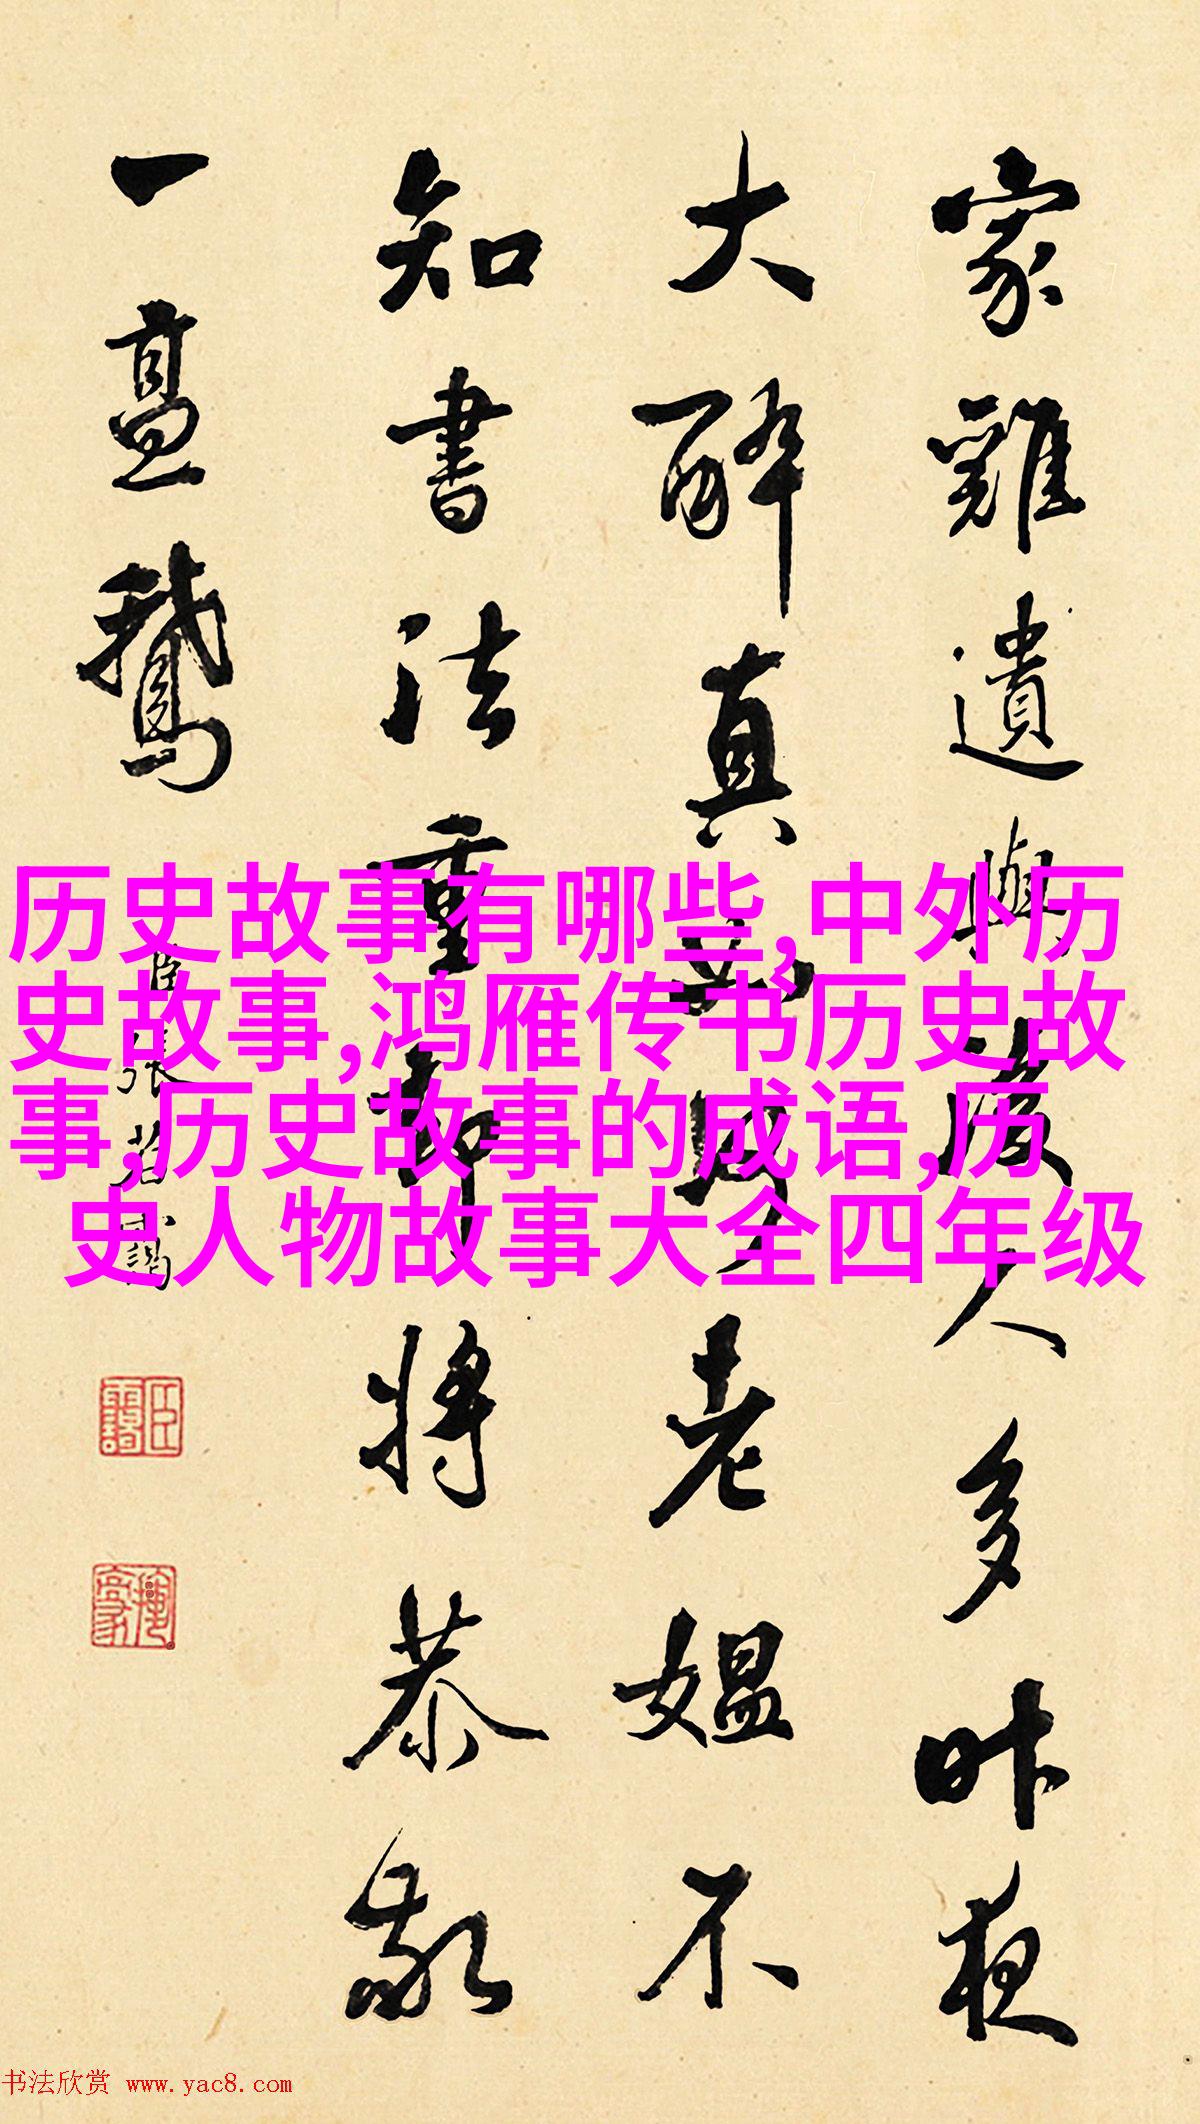 家雞遺與後人多昨夜
大醉真老媼不
知書法重將恭敬
一鵞
历史故事有哪些,中外历
史故事,鸿雁传书历史故
事,历史故事的成语,历
史人物故事大全四年级
书法欣赏 www.yac8.com